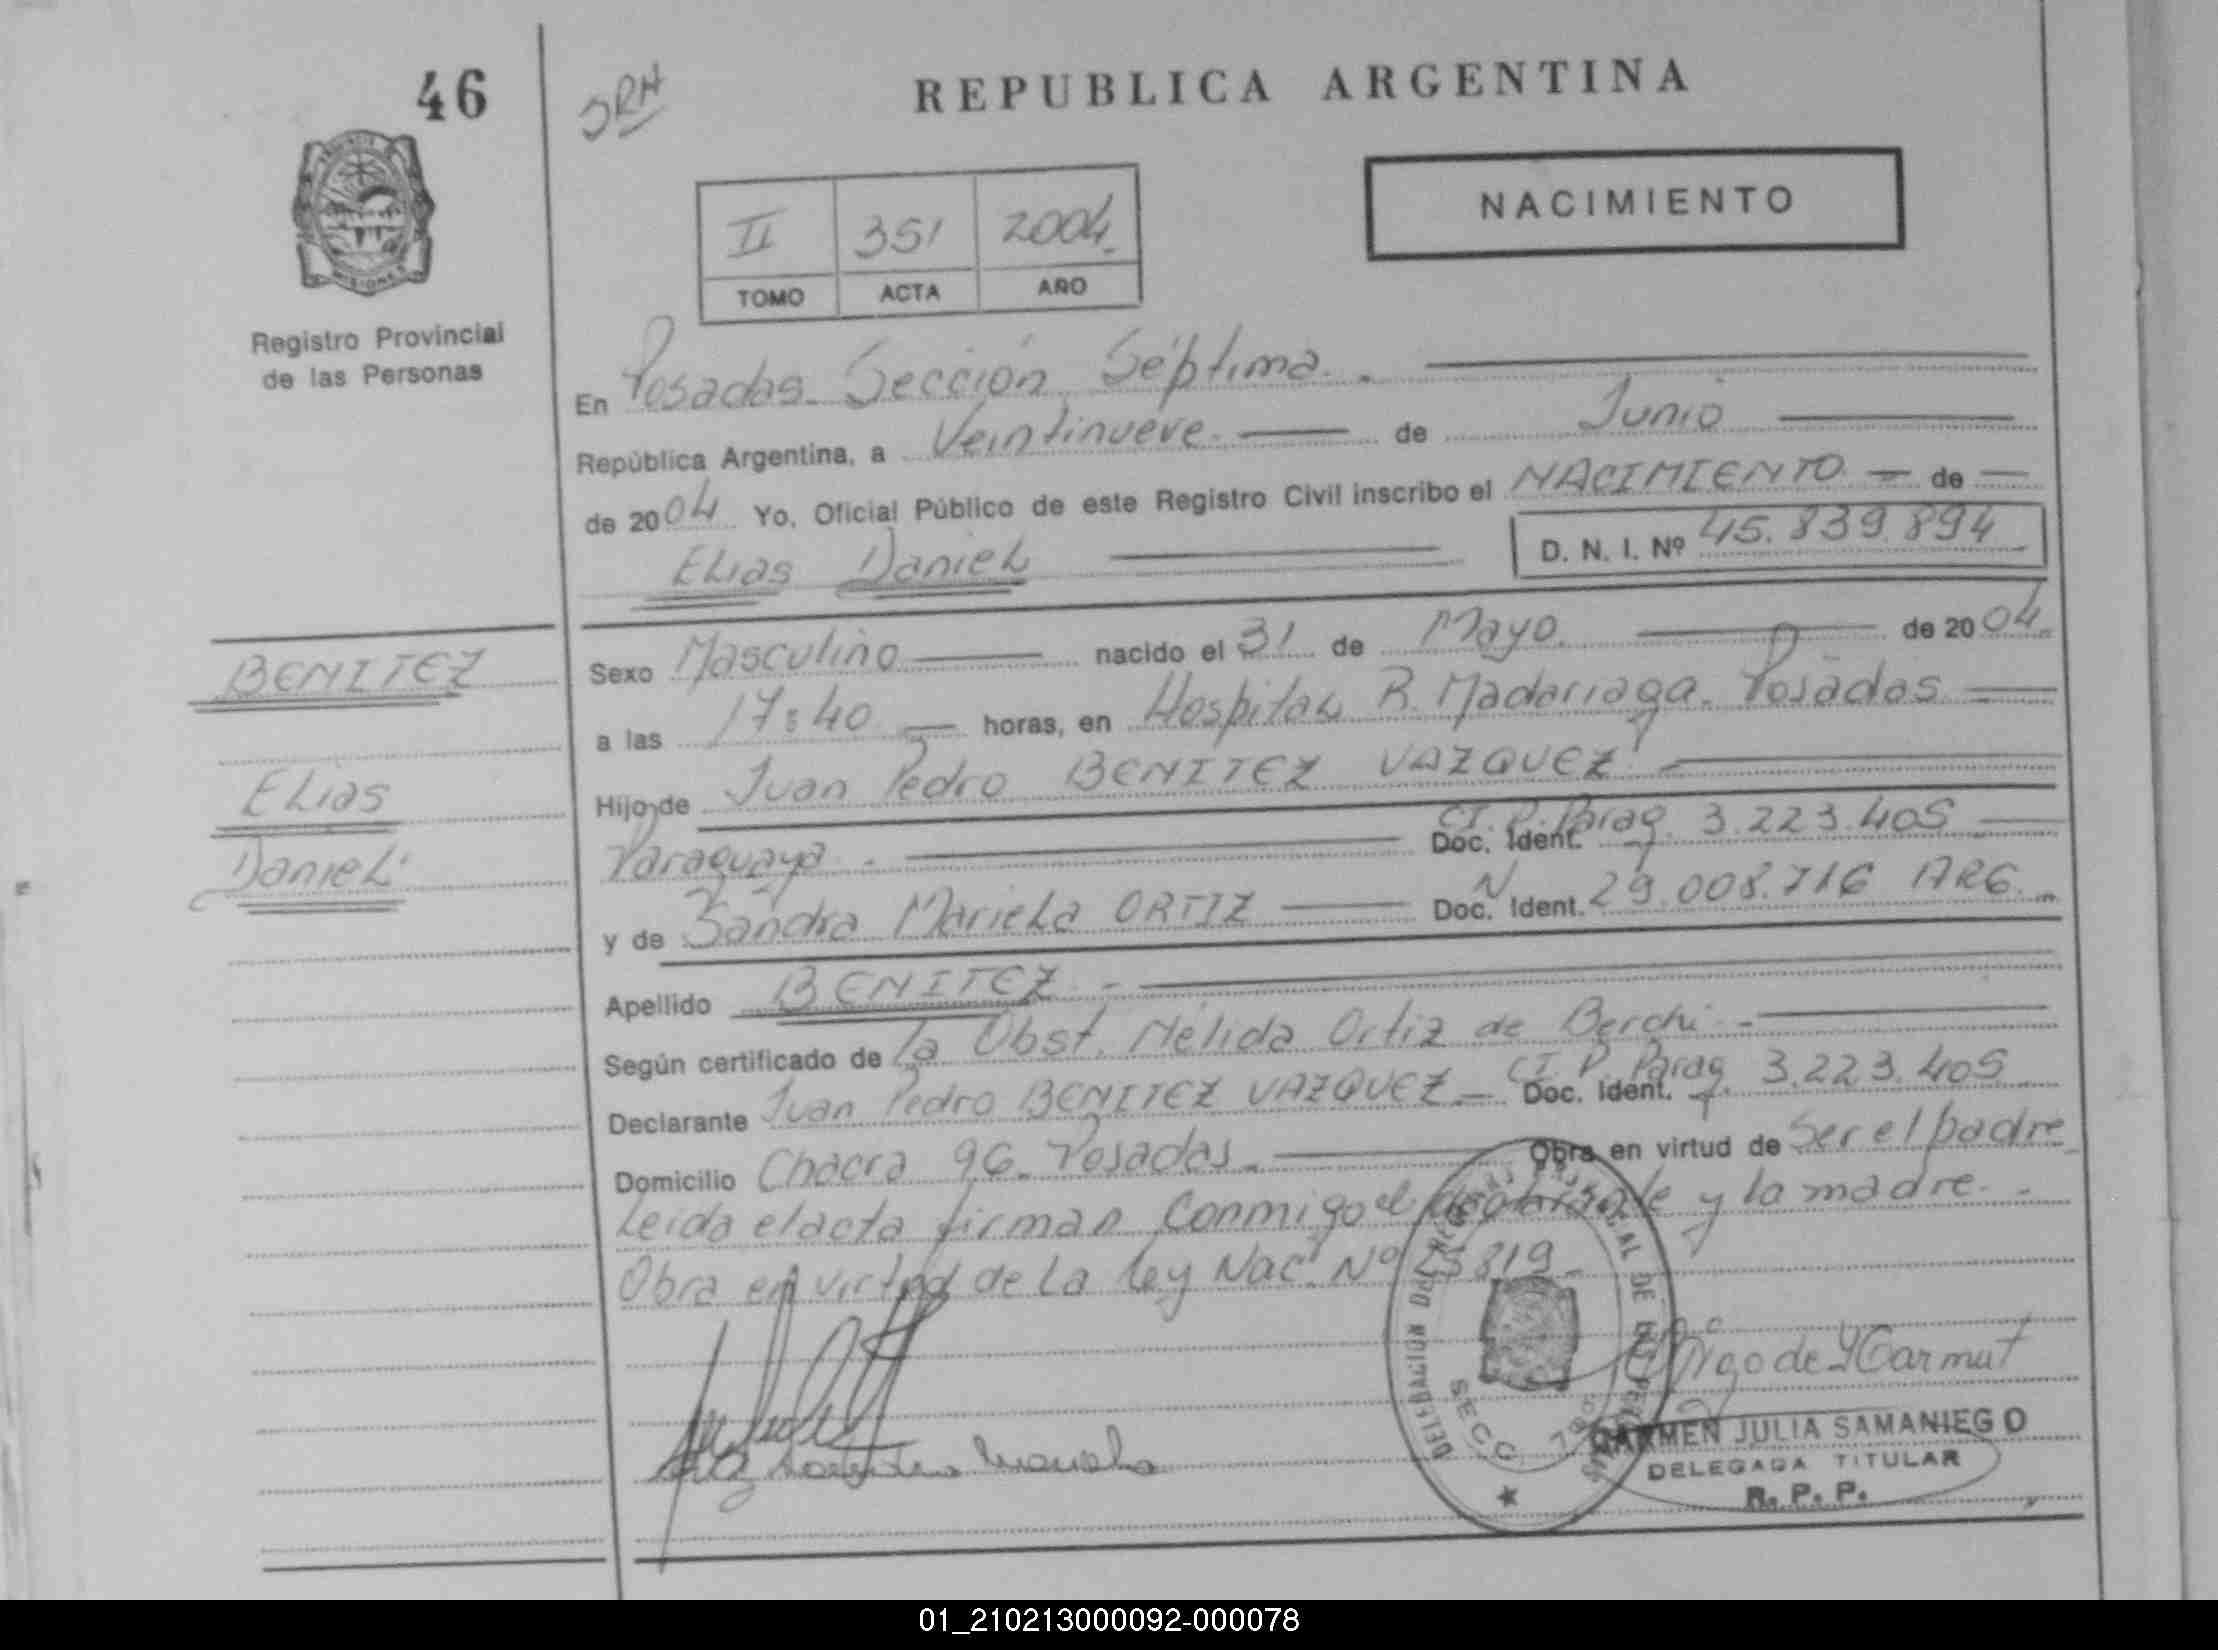 46
SRH
REPUBLICA ARGENTINA
PROVINCIA
MISIONES
Registro Provincial
de las Personas
II 351 2004.
TOMO ACTA AÑO
NACIMIENTO
En Posadas. Sección Séptima.
República Argentina, a Veintinueve. de Junio
de 2004 Yo, Oficial Público de este Registro Civil inscribo el NACIMIENTO de
Elias Daniel D. N. I. Nº 45.839.894
BENITEZ
Elias
Daniel
Sexo Masculino nacido el 31 de Mayo. de 2004.
a las 17:40 horas, en Hospital R. Madariaga. Posadas
Hijo de Juan Pedro BENITEZ VAZQUEZ
Paraguaya. Doc. Ident. CI. P. Parag. 3.223.405
y de Sandra Mariela ORTIZ Doc. N Ident. 29.008.716 ARG.
Apellido BENITEZ.
Según certificado de la Obst. Nélida Ortiz de Berchi.
Declarante Juan Pedro BENITEZ VAZQUEZ Doc. Ident. CI. P. Parag. 3.223.405
Domicilio Chacra 96. Posadas. Obra en virtud de Ser el padre
Leida el acta firman Conmigo el declarante y la madre.
Obra en virtud de la ley Nac. Nº 25819.
DELEGACION DEL REGISTRO PROVINCIAL DE LAS PERSONAS
SECC. 7
CARMEN JULIA SAMANIEGO
DELEGADA TITULAR
R. P. P.
01_210213000092-000078